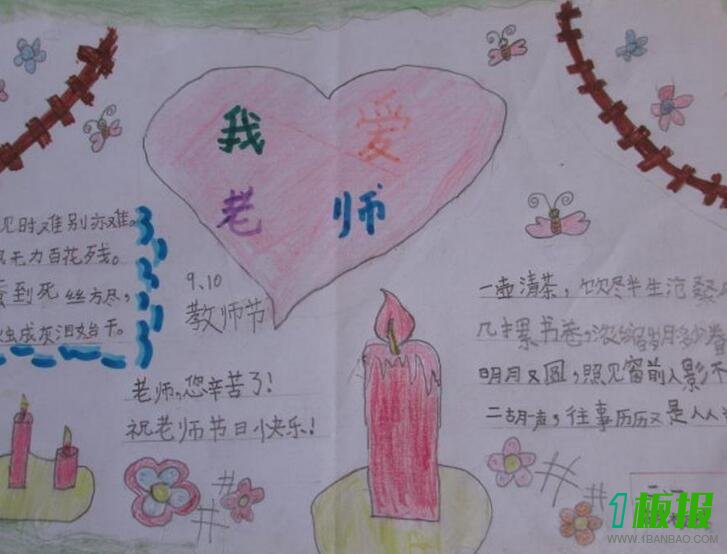 我 爱
老 师
见时难别亦难。
无力百花残。
到死丝方尽,
成灰泪始干。
9.10
教师节
老师,您辛苦了!
祝老师节日快乐!
一壶清茶,饮尽半生沧桑
几摞书卷,浓缩岁月多少
明月又圆,照见窗前人影不
二胡一声,往事历历又是人
1板报
WWW.1BANBAO.COM